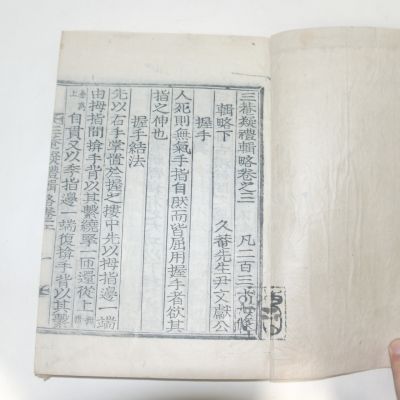 三菴疑禮輯略卷之三
凡二百三十七條
輯略下
久菴先生尹文獻公
握手
人死則無氣手指自厥而皆屈用握手者欲其
指之伸也
握手結法
先以右手掌置於握之摟中先以拇指邊一端
由拇指間揜手背以其繫繞擊一匝還從上
自貫又以季指邊一端復揜手背以其繫
三菴疑禮輯略卷三
一